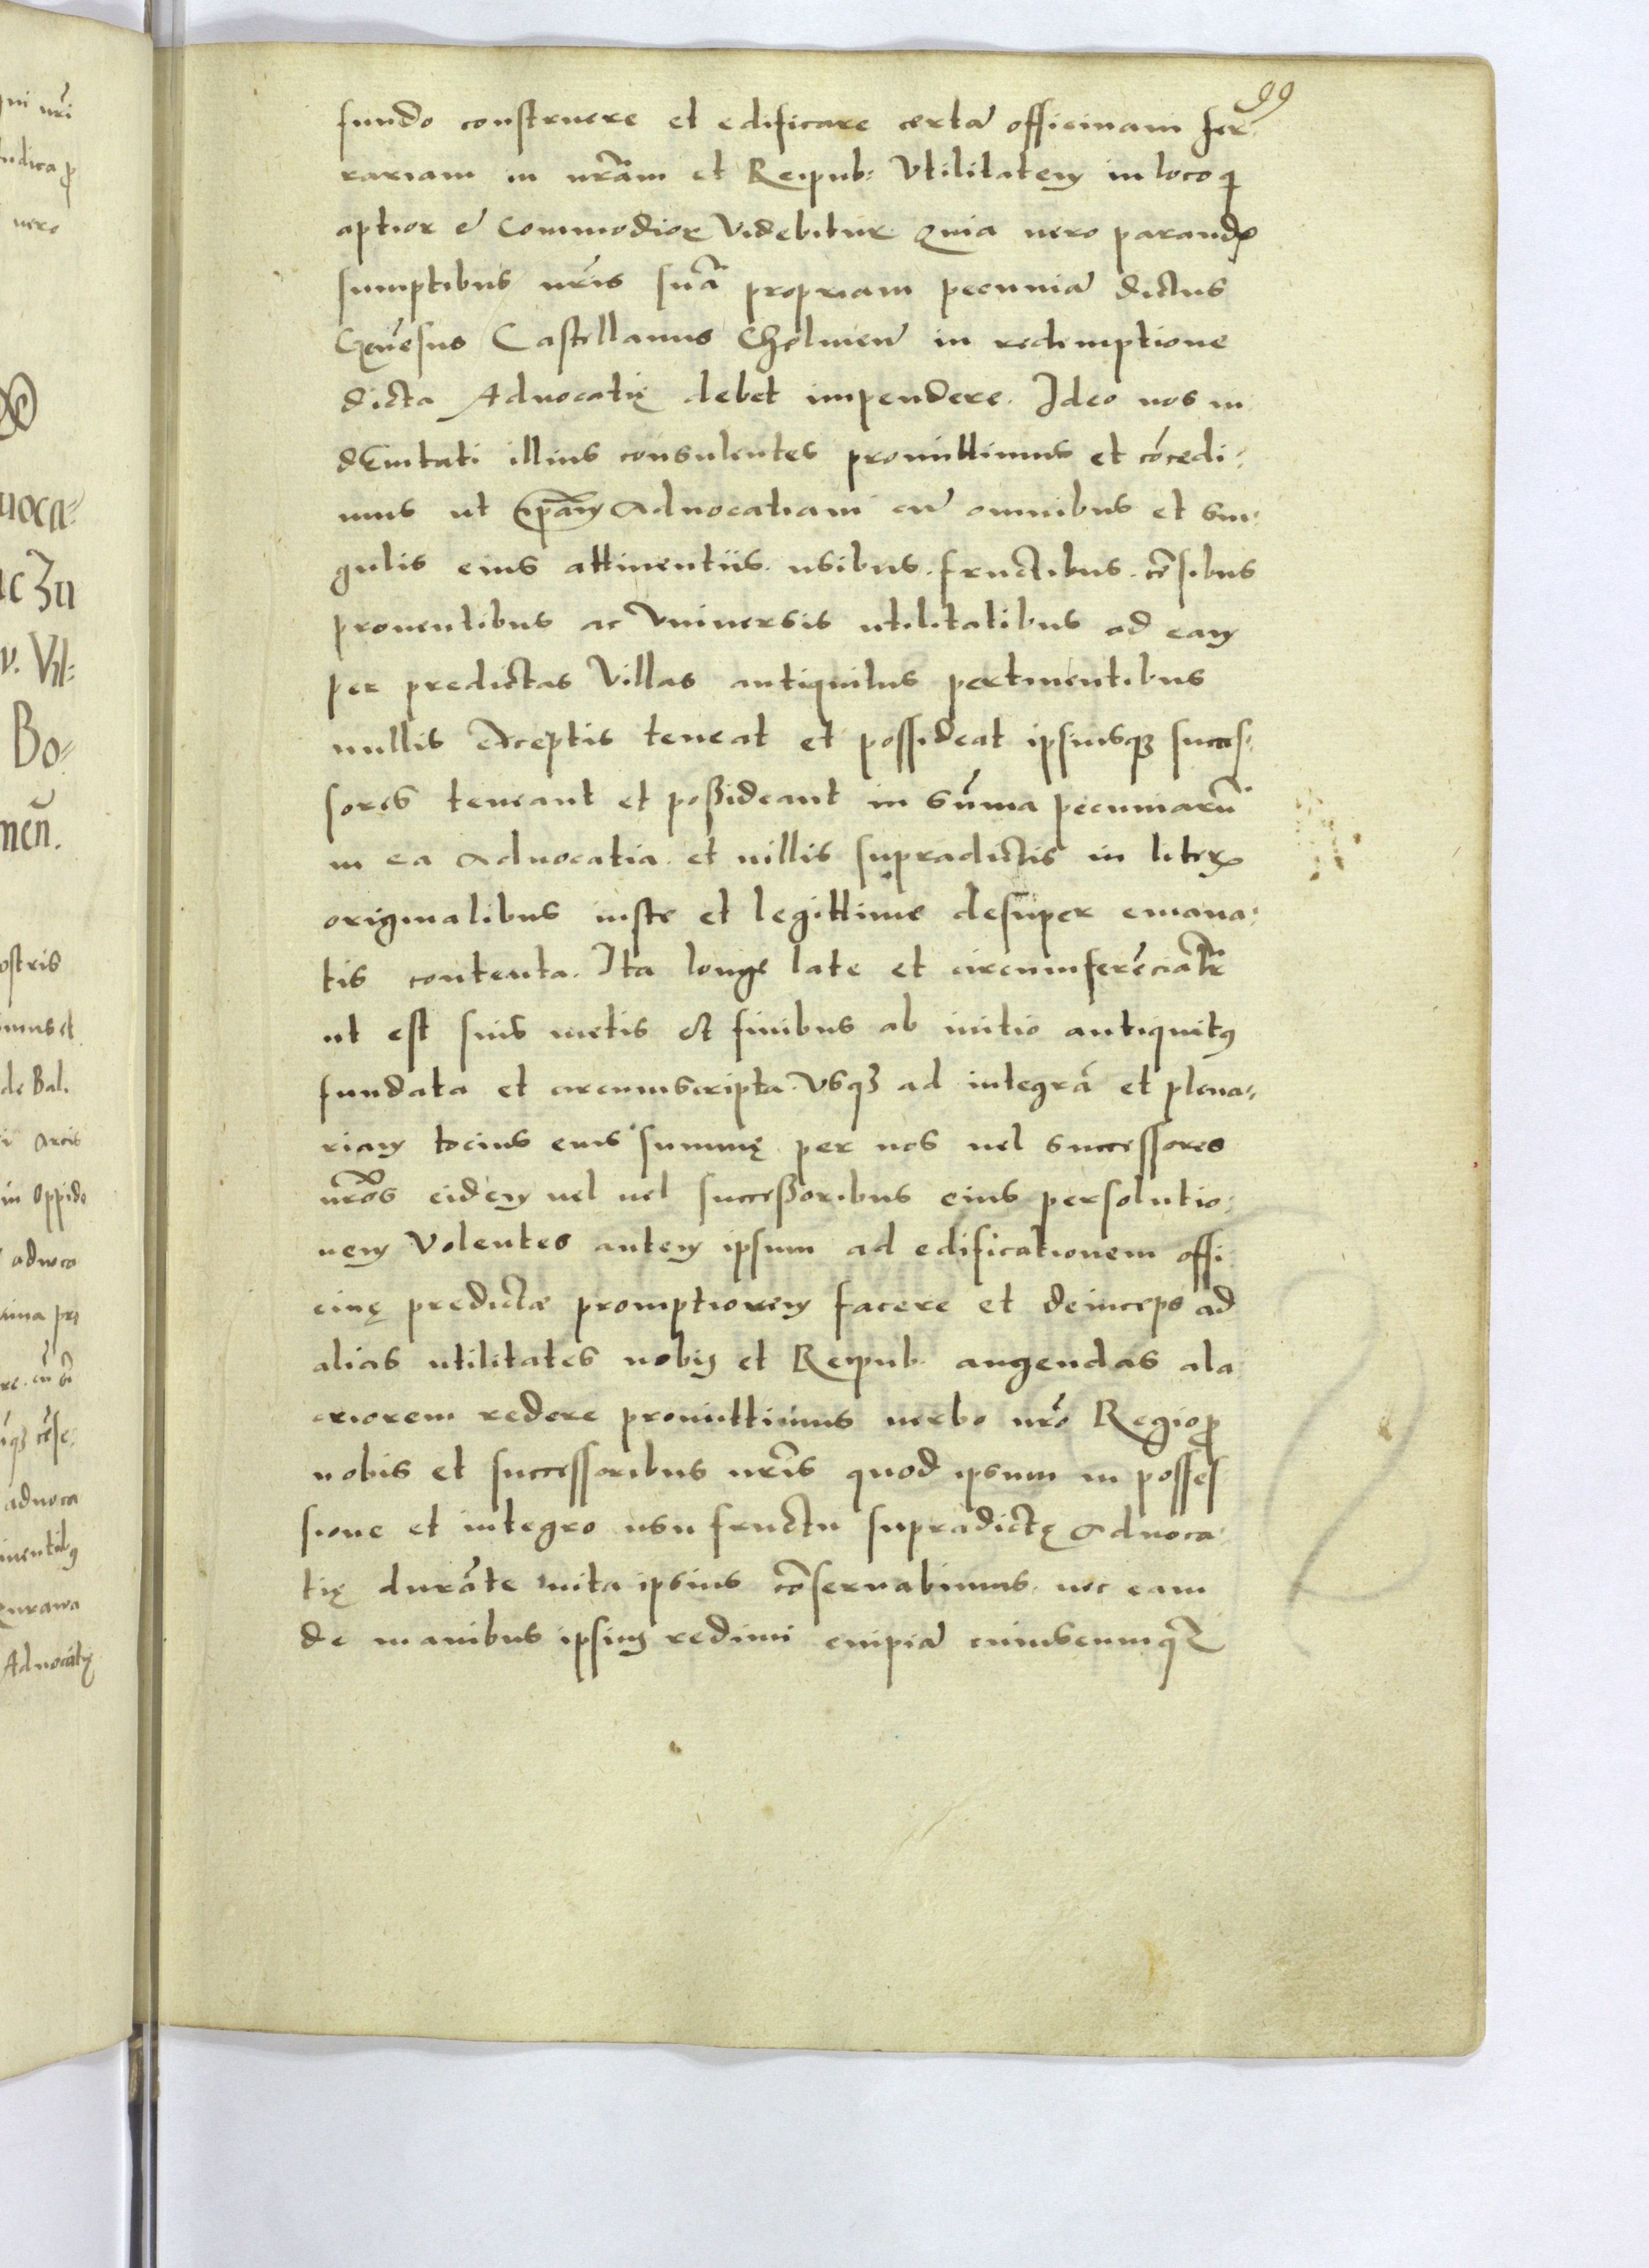 99
fundo construere et edificare certā officinam fer-
rariam in nrãm et Reipub: Vtilitatem in loco q
aptior ē Commodior Videbitur Quia uero parand
sumptibus nrĩs suã propriam pecuniā dictus
Castellanus Cholmen̄ in redemptione
dicta Aduocatię debet impendere. Ideo nos in
dēnitati illius consulentes promittimus et cōcedi-
mus ut ip̄am Aduocatiam cū omnibus et sin-
gulis eius attinentiis. usibus. fructibus. cēsibus
prouentibus ac Vniuersis utilitatibus ad eam
per predictas Villas antiquitus pertinentibus
nullis exceptis teneat et possideat ipsiusqꝫ succes-
sores teneant et possideant in sūma pecuniarū
in ea Aduocatia et uillis supradictis in liter
originalibus iuste et legittime desuper emana-
tis contenta. Ita longe late et circumferēciatr̄
ut est suis metis et finibus ab initio antiquitꝰ
fundata et circumscripta. Vsqꝫ ad integrā et plena-
riam tocius eius summę per nos uel successores
nr̄os eidem uel uel successoribus eius persolutio-
nem Volentes autem ipsum ad edificationem offi
cinę predictæ promptiorem facere et deinceps ad
alias utilitates nobis et Reipub. augendas ala
criorem redere promittimus uerbo nr̄o Regio ꝓ
nobis et successoribus nr̄is quod ipsum in posses
sione et integro usu fructu supradictę Aduoca-
tię durāte uita ipsius cōseruabimus. nec eam
de manibus ipsius redimi cuipiā cuiuscumqꝫ